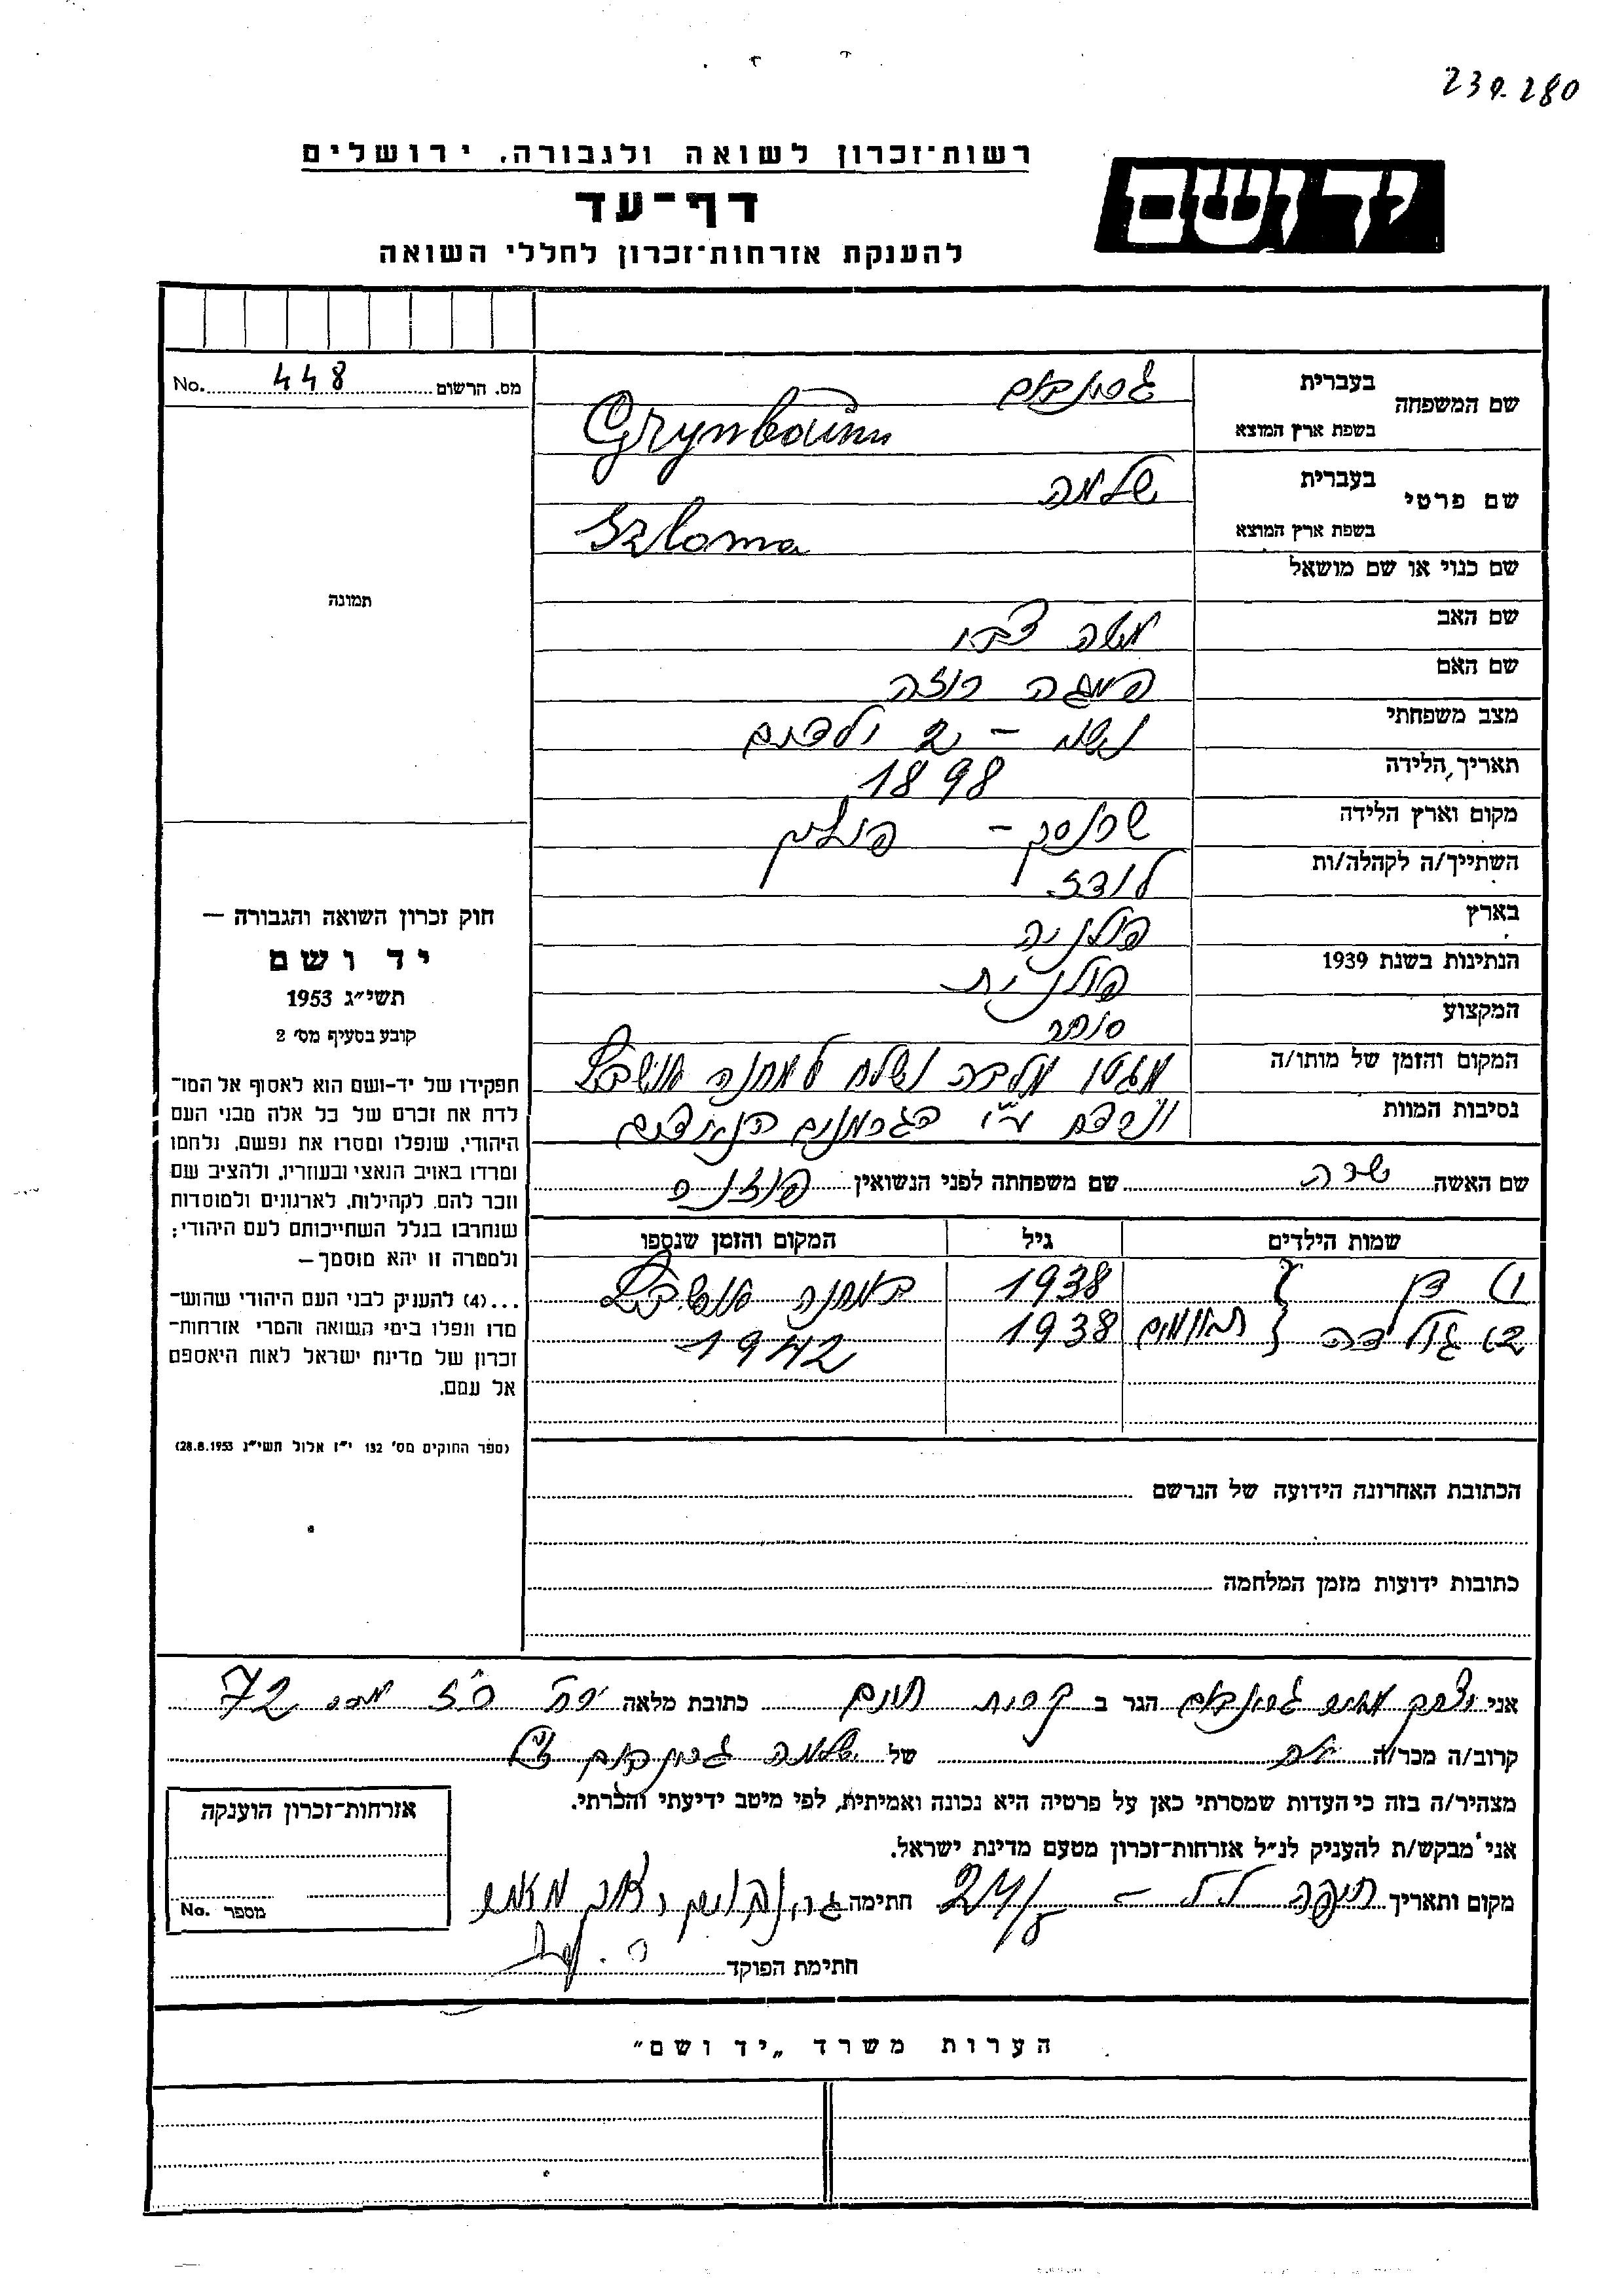 239.280
רשות־זכרון לשואה ולגבורה, ירושלים
יד ושם
דף־עד
להענקת אזרחות־זכרון לחללי השואה
מס. הרשום 448 No.
שם המשפחה בעברית גרינבוים
בשפת ארץ המוצא Grynbaum
שם פרטי בעברית שלמה
בשפת ארץ המוצא Szloma
שם כנוי או שם מושאל
שם האב משה צבי
שם האם רוזה
מצב משפחתי נשוי – 2 ילדים
תאריך הלידה 1898
מקום וארץ הלידה שרנסק – פולין
השתייך/ה לקהלה/ות לודז
בארץ פולניה
הנתינות בשנת 1939 פולנית
המקצוע סוחר
המקום והזמן של מותו/ה מגטו מלבה נשלח למחנה אושביץ
נסיבות המוות ע"י הגרמנים הנאצים
שם האשה שרה שם משפחתה לפני הנשואין
שמות הילדים גיל המקום והזמן שנספו
1) דן 1938 במחנה אושביץ
2) תאומים 1938 1942
הכתובת האחרונה הידועה של הנרשם
כתובות ידועות מזמן המלחמה
תמונה
חוק זכרון השואה והגבורה —
יד ושם
תשי״ג 1953
קובע בסעיף מס׳ 2
תפקידו של יד-ושם הוא לאסוף אל המו־
לדת את זכרם של כל אלה מבני העם
היהודי, שנפלו ומסרו את נפשם, נלחמו
ומרדו באויב הנאצי ובעוזריו, ולהציב שם
וזכר להם, לקהילות, לארגונים ולמוסדות
שנחרבו בגלל השתייכותם לעם היהודי;
ולמטרה זו יהא מוסמך —
...(4) להעניק לבני העם היהודי שהוש־
מדו ונפלו בימי השואה והמרי אזרחות־
זכרון של מדינת ישראל לאות היאספם
אל עמם.
(ספר החוקים מס׳ 132 י״ז אלול תשי״ג 28.8.1953)
אני יצחק גרינבוים הגר ב קרית חיים כתובת מלאה 72
קרוב/ה מכר/ה של שלמה גרינבוים ז"ל
מצהיר/ה בזה כי העדות שמסרתי כאן על פרטיה היא נכונה ואמיתית, לפי מיטב ידיעתי והכרתי.
אני מבקש/ת להעניק לנ״ל אזרחות־זכרון מטעם מדינת ישראל.
מקום ותאריך חיפה חתימה
חתימת הפוקד
אזרחות־זכרון הוענקה
מספר No.
הערות משרד „יד ושם״